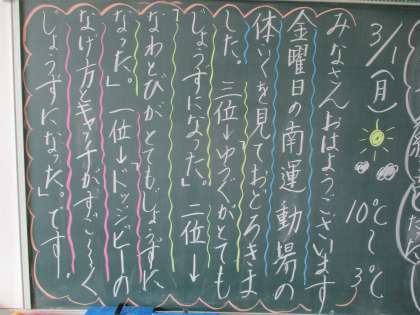 3/1(月)
10℃
〜
3℃
みなさんおはようございます。
金曜日の南運動場の
体いくを見ておどろきま
した。三位→ゆうぐがとても
じょうずになった。」二位→
なわとびがとてもじょうずに
なった。」一位→ドッジビーの
なげ方とキャッチがすご〜く
じょうずになった。」です。